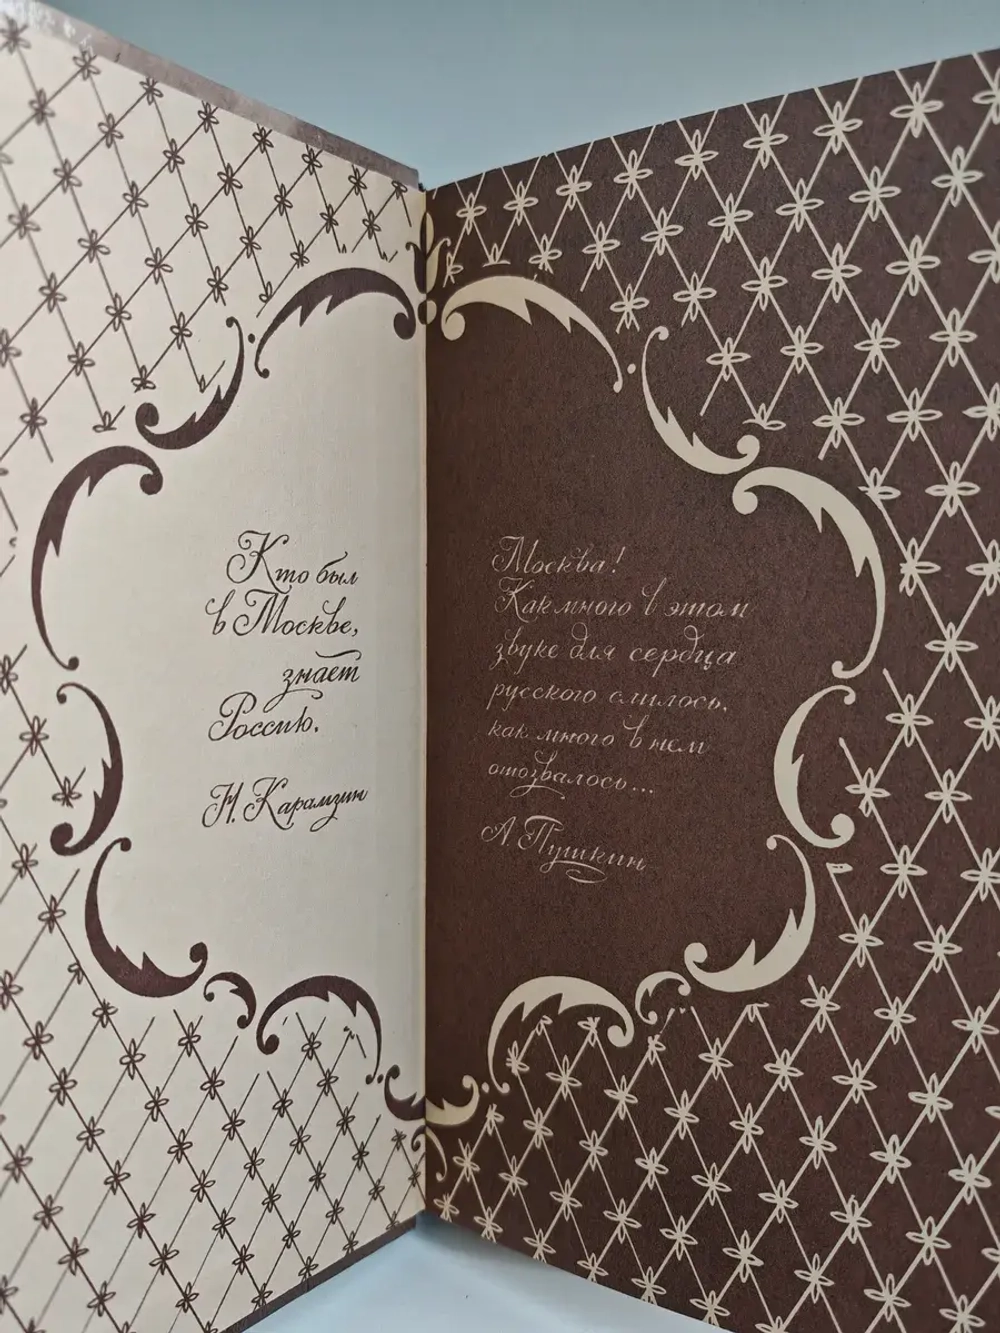 Кто был
в Москве,
знает
Россию.
Н. Карамзин
Москва!
Как много в этом
звуке для сердца
русского слилось,
как много в нем
отозвалось...
А. Пушкин